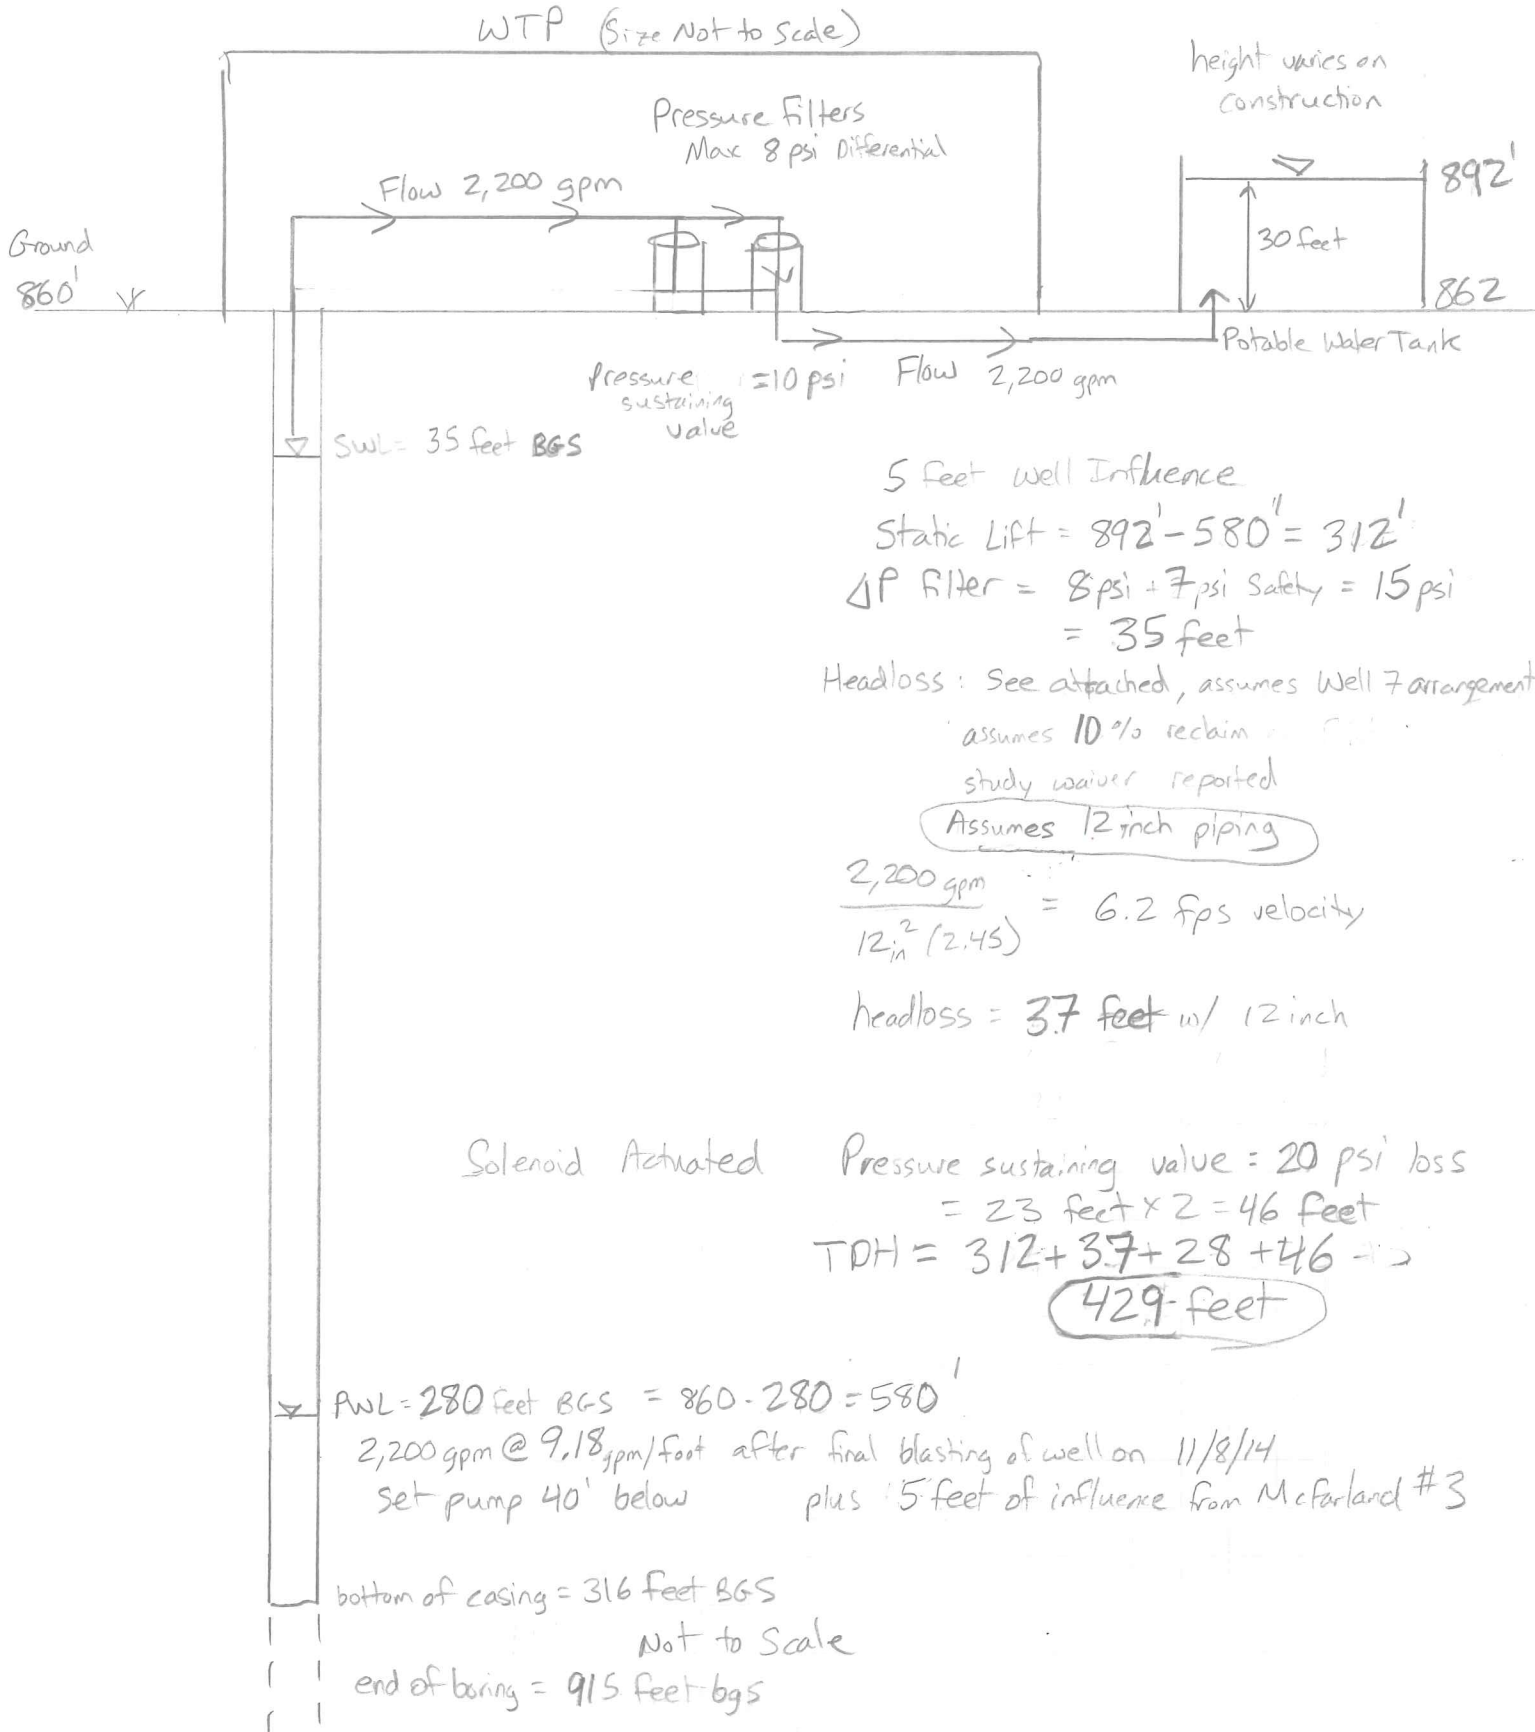 WTP (Size Not to Scale)
height varies on
construction
Pressure Filters
Max 8 psi Differential
Flow 2,200 gpm
892'
30 feet
862
Ground
860'
Potable Water Tank
Pressure = 10 psi
sustaining
value
Flow 2,200 gpm
SWL = 35 feet BGS
5 feet well Influence
Static Lift = 892' - 580'' = 312'
ΔP Filter = 8 psi + 7 psi Safety = 15 psi
= 35 feet
Headloss : See attached, assumes Well 7 arrangement
assumes 10 % reclaim
study waiver reported
Assumes 12 inch piping
2,200 gpm
12 in² (2.45)
= 6.2 fps velocity
headloss = 37 feet w/ 12 inch
Solenoid Actuated Pressure sustaining value = 20 psi loss
= 23 feet x 2 = 46 feet
TDH = 312 + 37 + 28 + 46
429 feet
PWL = 280 feet BGS = 860 - 280 = 580'
2,200 gpm @ 9.18 gpm/foot after final blasting of well on 11/8/14
set pump 40' below plus 5 feet of influence from McFarland #3
bottom of casing = 316 feet BGS
Not to Scale
end of boring = 915 feet bgs